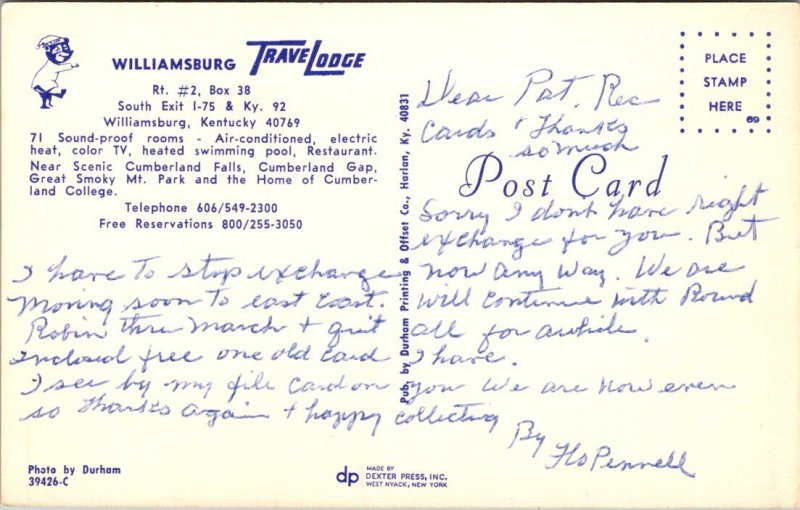 WILLIAMSBURG TRAVELODGE
Rt. #2, Box 38
South Exit I-75 & Ky. 92
Williamsburg, Kentucky 40769
71 Sound-proof rooms - Air-conditioned, electric
heat, color TV, heated swimming pool, Restaurant.
Near Scenic Cumberland Falls, Cumberland Gap,
Great Smoky Mt. Park and the Home of Cumber-
land College.
Telephone 606/549-2300
Free Reservations 800/255-3050
Pub. by Durham Printing & Offset Co., Harlan, Ky. 40831
PLACE
STAMP
HERE
69
Post Card
Dear Pat. Rec
Cards & Thanks
so much
Sorry I don't have right
exchange for you. But
now any way. We are
I have to stop exchange
Moving soon to east coast.
will continue with Round
Robin thru March & quit
all for awhile.
Inclosed free one old card I have.
I see by my file card on you we are now even
so thanks again & happy collecting
By
Flo Pennell
Photo by Durham
39426-C
dp
MADE BY
DEXTER PRESS, INC.
WEST NYACK, NEW YORK